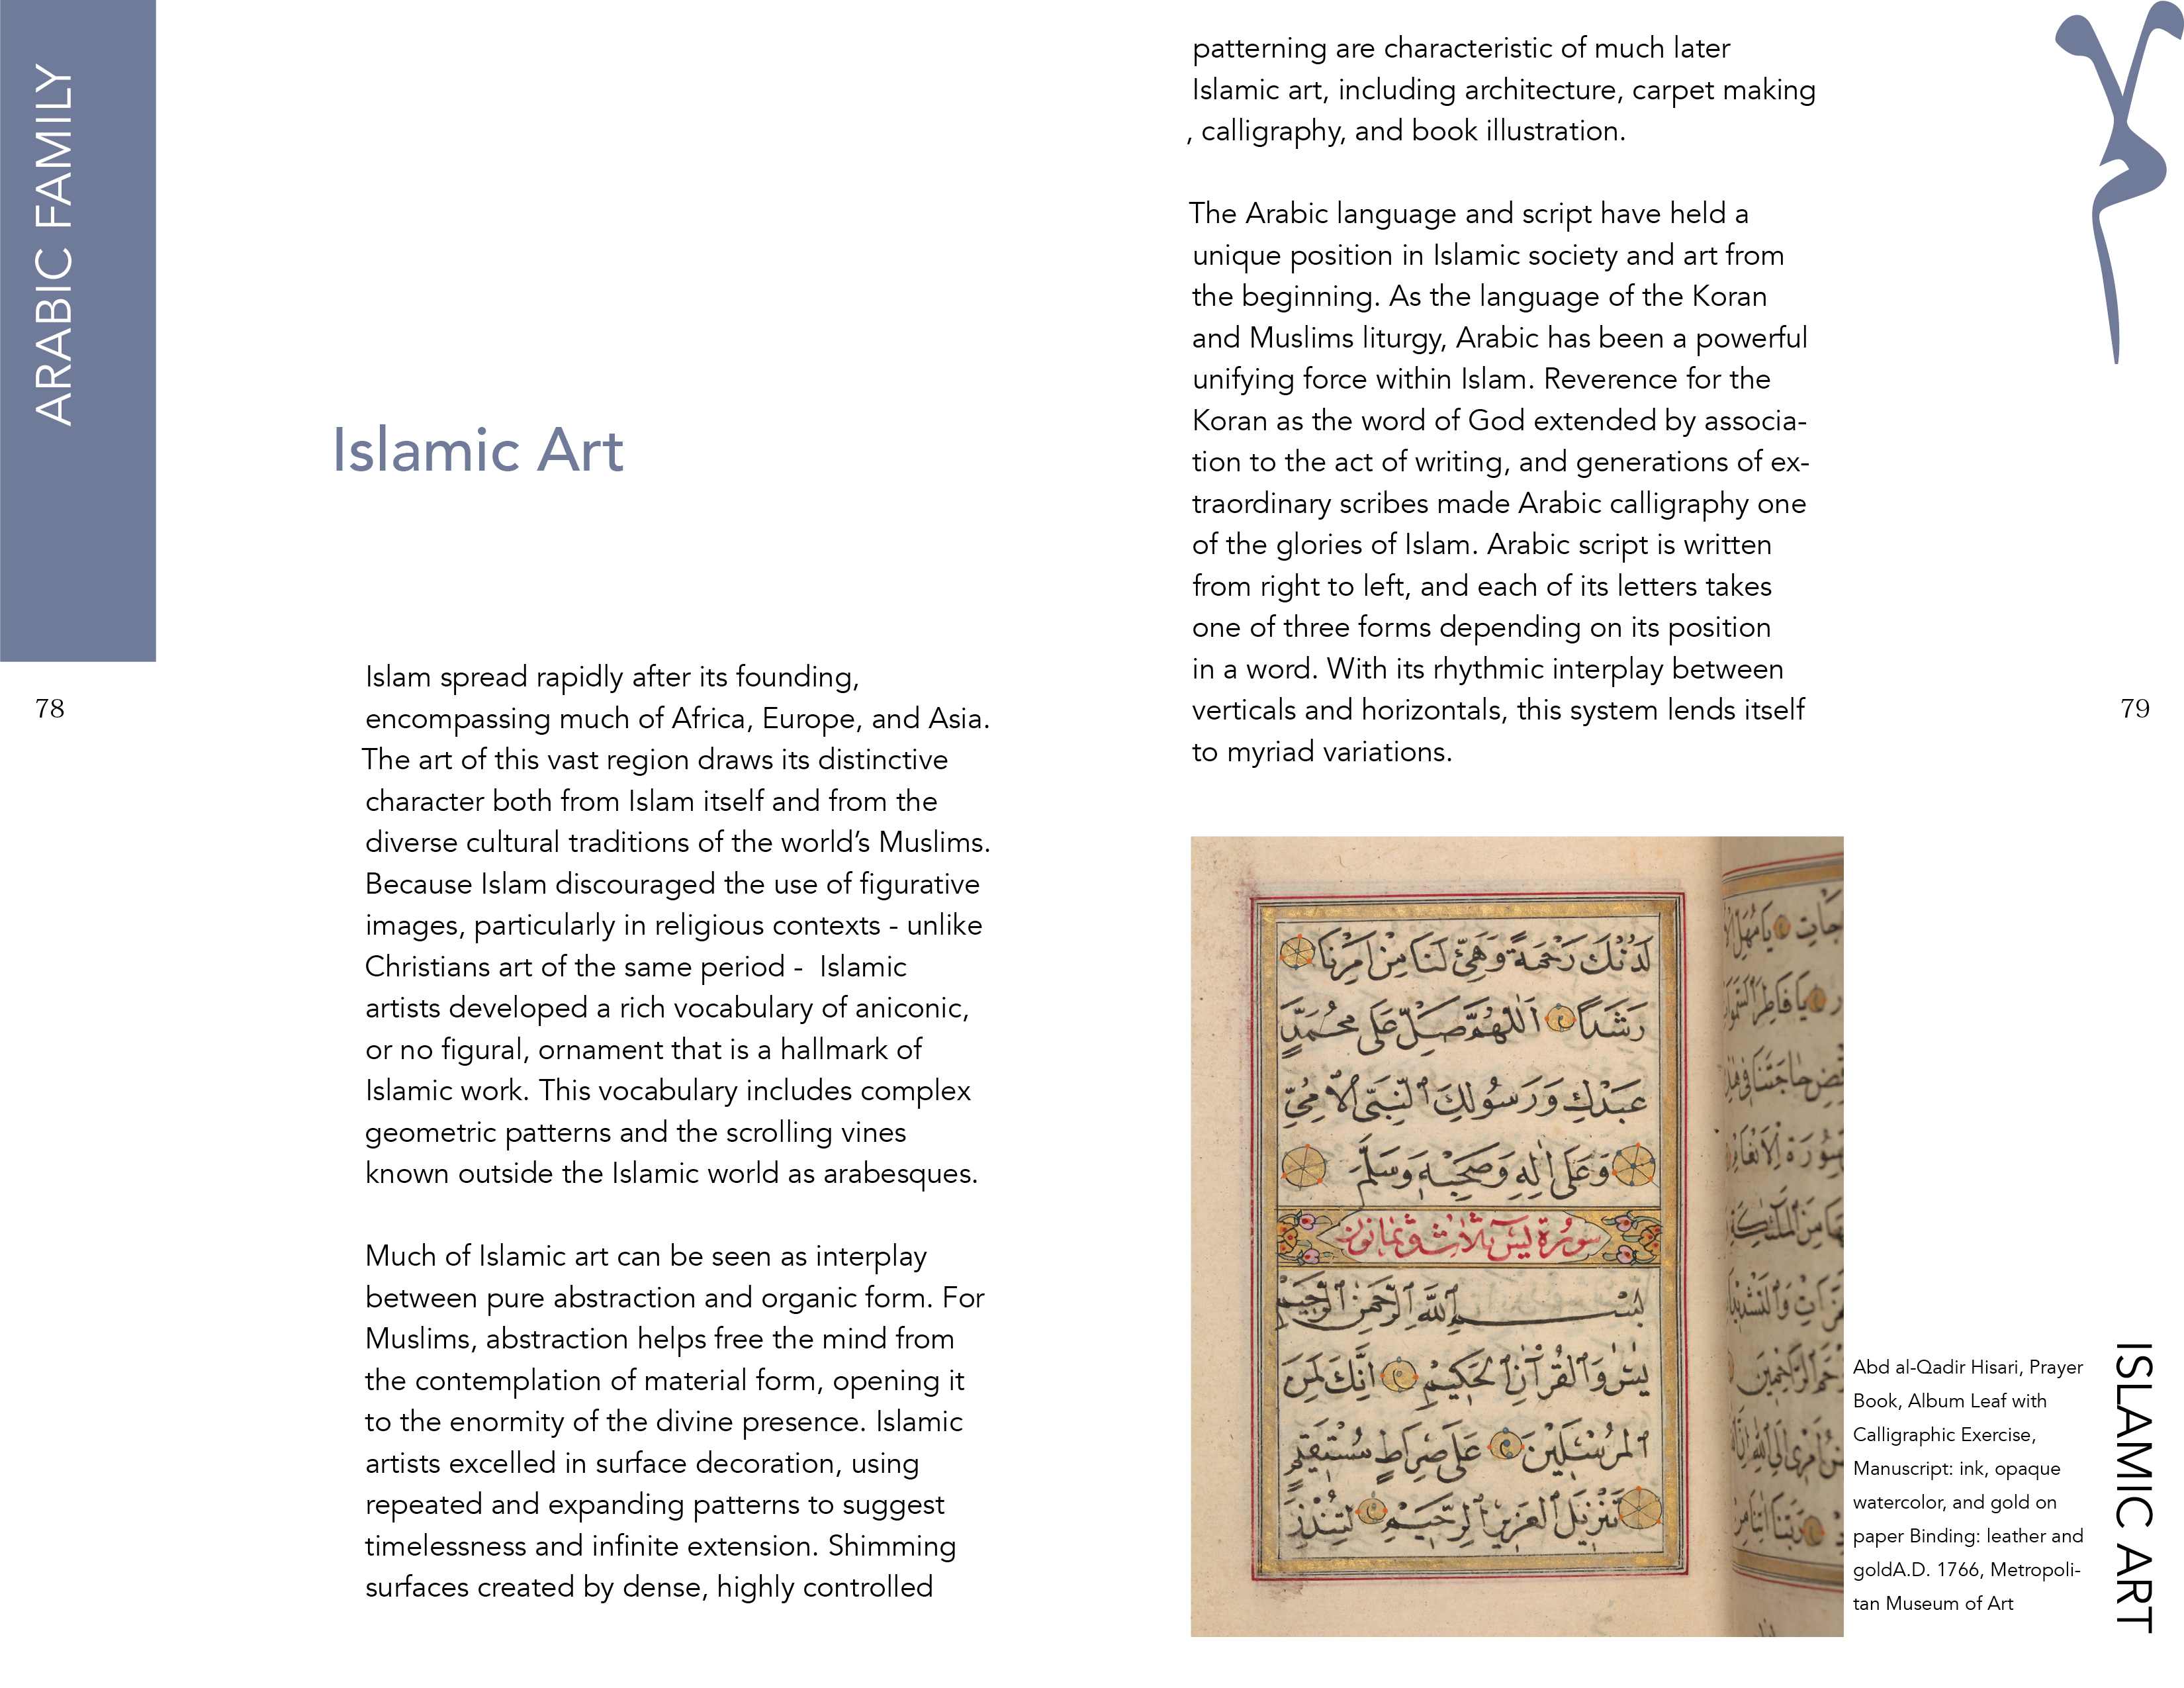 ARABIC FAMILY
78
Islamic Art
Islam spread rapidly after its founding,
encompassing much of Africa, Europe, and Asia.
The art of this vast region draws its distinctive
character both from Islam itself and from the
diverse cultural traditions of the world’s Muslims.
Because Islam discouraged the use of figurative
images, particularly in religious contexts - unlike
Christians art of the same period -  Islamic
artists developed a rich vocabulary of aniconic,
or no figural, ornament that is a hallmark of
Islamic work. This vocabulary includes complex
geometric patterns and the scrolling vines
known outside the Islamic world as arabesques.
Much of Islamic art can be seen as interplay
between pure abstraction and organic form. For
Muslims, abstraction helps free the mind from
the contemplation of material form, opening it
to the enormity of the divine presence. Islamic
artists excelled in surface decoration, using
repeated and expanding patterns to suggest
timelessness and infinite extension. Shimming
surfaces created by dense, highly controlled
patterning are characteristic of much later
Islamic art, including architecture, carpet making
, calligraphy, and book illustration.
The Arabic language and script have held a
unique position in Islamic society and art from
the beginning. As the language of the Koran
and Muslims liturgy, Arabic has been a powerful
unifying force within Islam. Reverence for the
Koran as the word of God extended by associa-
tion to the act of writing, and generations of ex-
traordinary scribes made Arabic calligraphy one
of the glories of Islam. Arabic script is written
from right to left, and each of its letters takes
one of three forms depending on its position
in a word. With its rhythmic interplay between
verticals and horizontals, this system lends itself
to myriad variations.
79
لَدُنْكَ رَحْمَةً وَهَيِّئْ لَنَا مِنْ اَمْرِنَا
رَشَدًا اَللّٰهُمَّ صَلِّ عَلٰى مُحَمَّدٍ
عَبْدِكَ وَرَسُولِكَ النَّبِيِّ الْاُمِّيِّ
وَعَلٰى اٰلِهِ وَصَحْبِهِ وَسَلَّمَ
سورة يس ثلاث وثمانون
بِسْمِ اللهِ الرَّحْمٰنِ الرَّحِيمِ
يٰسٓ وَالْقُرْآنِ الْحَكِيمِ اِنَّكَ لَمِنَ
الْمُرْسَلِينَ عَلٰى صِرَاطٍ مُسْتَقِيمٍ
تَنْزِيلَ الْعَزِيزِ الرَّحِيمِ لِتُنْذِرَ
Abd al-Qadir Hisari, Prayer
Book, Album Leaf with
Calligraphic Exercise,
Manuscript: ink, opaque
watercolor, and gold on
paper Binding: leather and
goldA.D. 1766, Metropoli-
tan Museum of Art
ISLAMIC ART